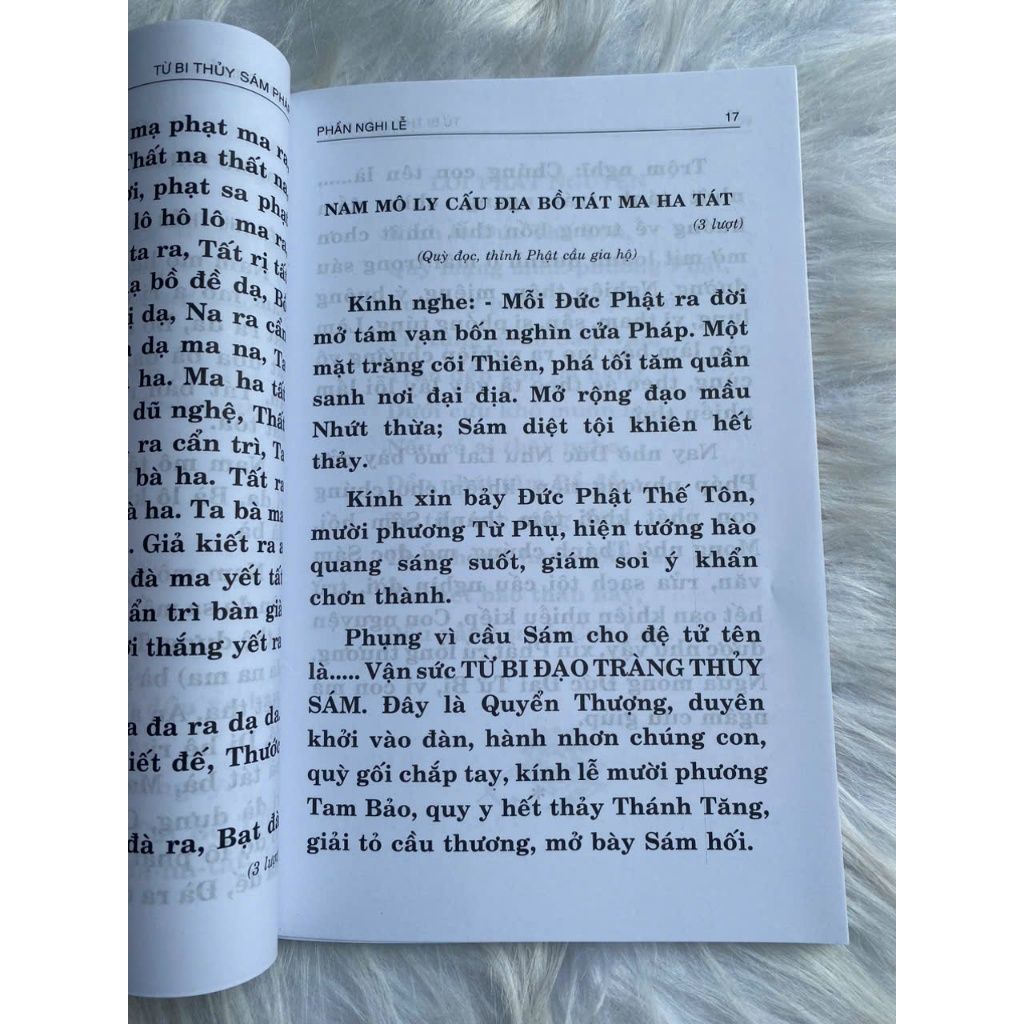 TỪ BI THỦY SÁM PHÁP
mạ phạt ma ra,
Thất na thất na,
phạt sa phạt
lô hô lô ma ra,
ta ra, Tất rị tất
bồ đề dạ, Bồ
dạ, Na ra cẩn
dạ ma na, Ta
ha. Ma ha tất
dũ nghệ, Thất
ra cẩn trì, Ta
bà ha. Tất ra
hà ha. Ta bà ma
Giả kiết ra a
đà ma yết tất
cẩn trì bàn già
thắng yết ra
đa ra dạ da
đế, Thước
đà ra, Bạt đà
(3 lượt)
PHẦN NGHI LỄ 17
NAM MÔ LY CẤU ĐỊA BỒ TÁT MA HA TÁT
(3 lượt)
(Quỳ đọc, thỉnh Phật cầu gia hộ)
Kính nghe: - Mỗi Đức Phật ra đời
mở tám vạn bốn nghìn cửa Pháp. Một
mặt trăng cõi Thiên, phá tối tăm quần
sanh nơi đại địa. Mở rộng đạo mầu
Nhứt thừa; Sám diệt tội khiên hết
thảy.
Kính xin bảy Đức Phật Thế Tôn,
mười phương Từ Phụ, hiện tướng hào
quang sáng suốt, giám soi ý khẩn
chơn thành.
Phụng vì cầu Sám cho đệ tử tên
là..... Vận sức TỪ BI ĐẠO TRÀNG THỦY
SÁM. Đây là Quyển Thượng, duyên
khởi vào đàn, hành nhơn chúng con,
quỳ gối chắp tay, kính lễ mười phương
Tam Bảo, quy y hết thảy Thánh Tăng,
giải tỏ cầu thương, mở bày Sám hối.